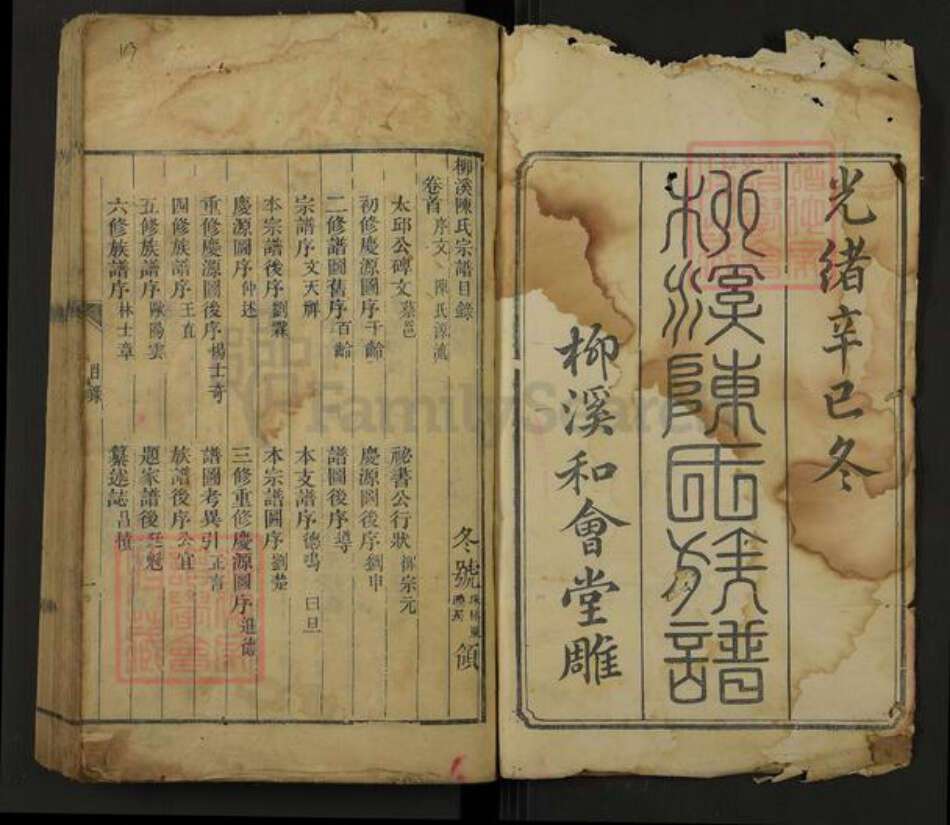 光緒辛巳冬
柳溪陳氏族譜
柳溪和會堂雕
柳溪陳氏宗譜目錄
冬號
領
卷首 序文 陳氏源流
太邱公碑文 蔡邕
祕書公行狀 柳宗元
初修慶源圖序 千齡
慶源圖後序 劉申
二修譜圖舊序 百齡
譜圖後序 導
宗譜序 文天祥
本支譜序 德鳴 日旦
本宗譜後序 劉霖
本宗譜圖序 劉楚
慶源圖序 仲述
三修重修慶源圖序 進德
重修慶源圖後序 楊士奇
譜圖考異引 正言
四修族譜序 王直
族譜後序 公宜
五修族譜序 歐陽雲
題家譜後 廷魁
六修族譜序 林士章
纂述誌 昌積
目錄
一
FamilySearch